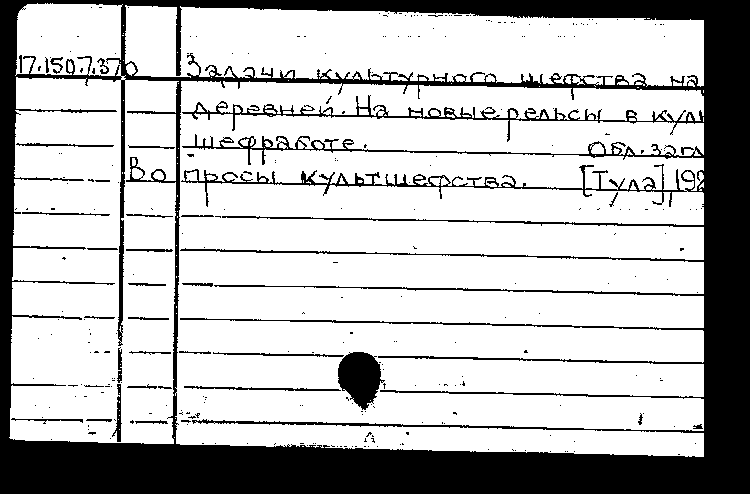 17.150.7.370 Задачи культурного шефства на
деревней. На новые рельсы в куль
шефработе. Обл. загл
Вопросы культшефства. [Тула], 192